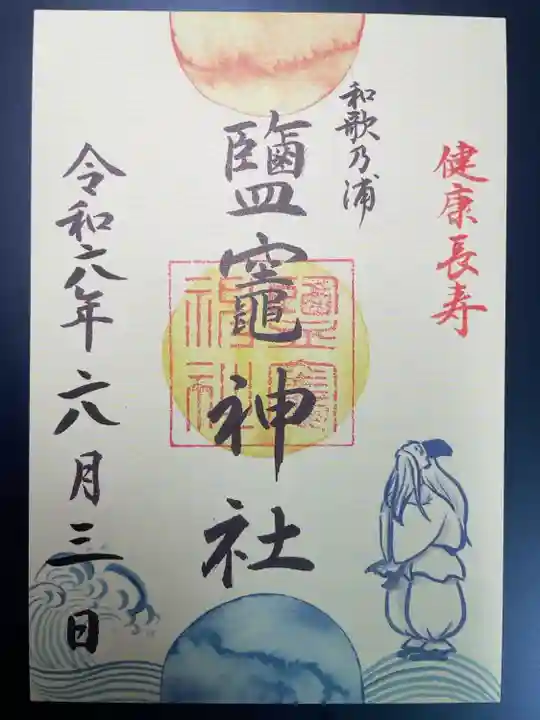 健康長寿
和歌乃浦
鹽竈神社
鹽竈神社
令和六年六月三日